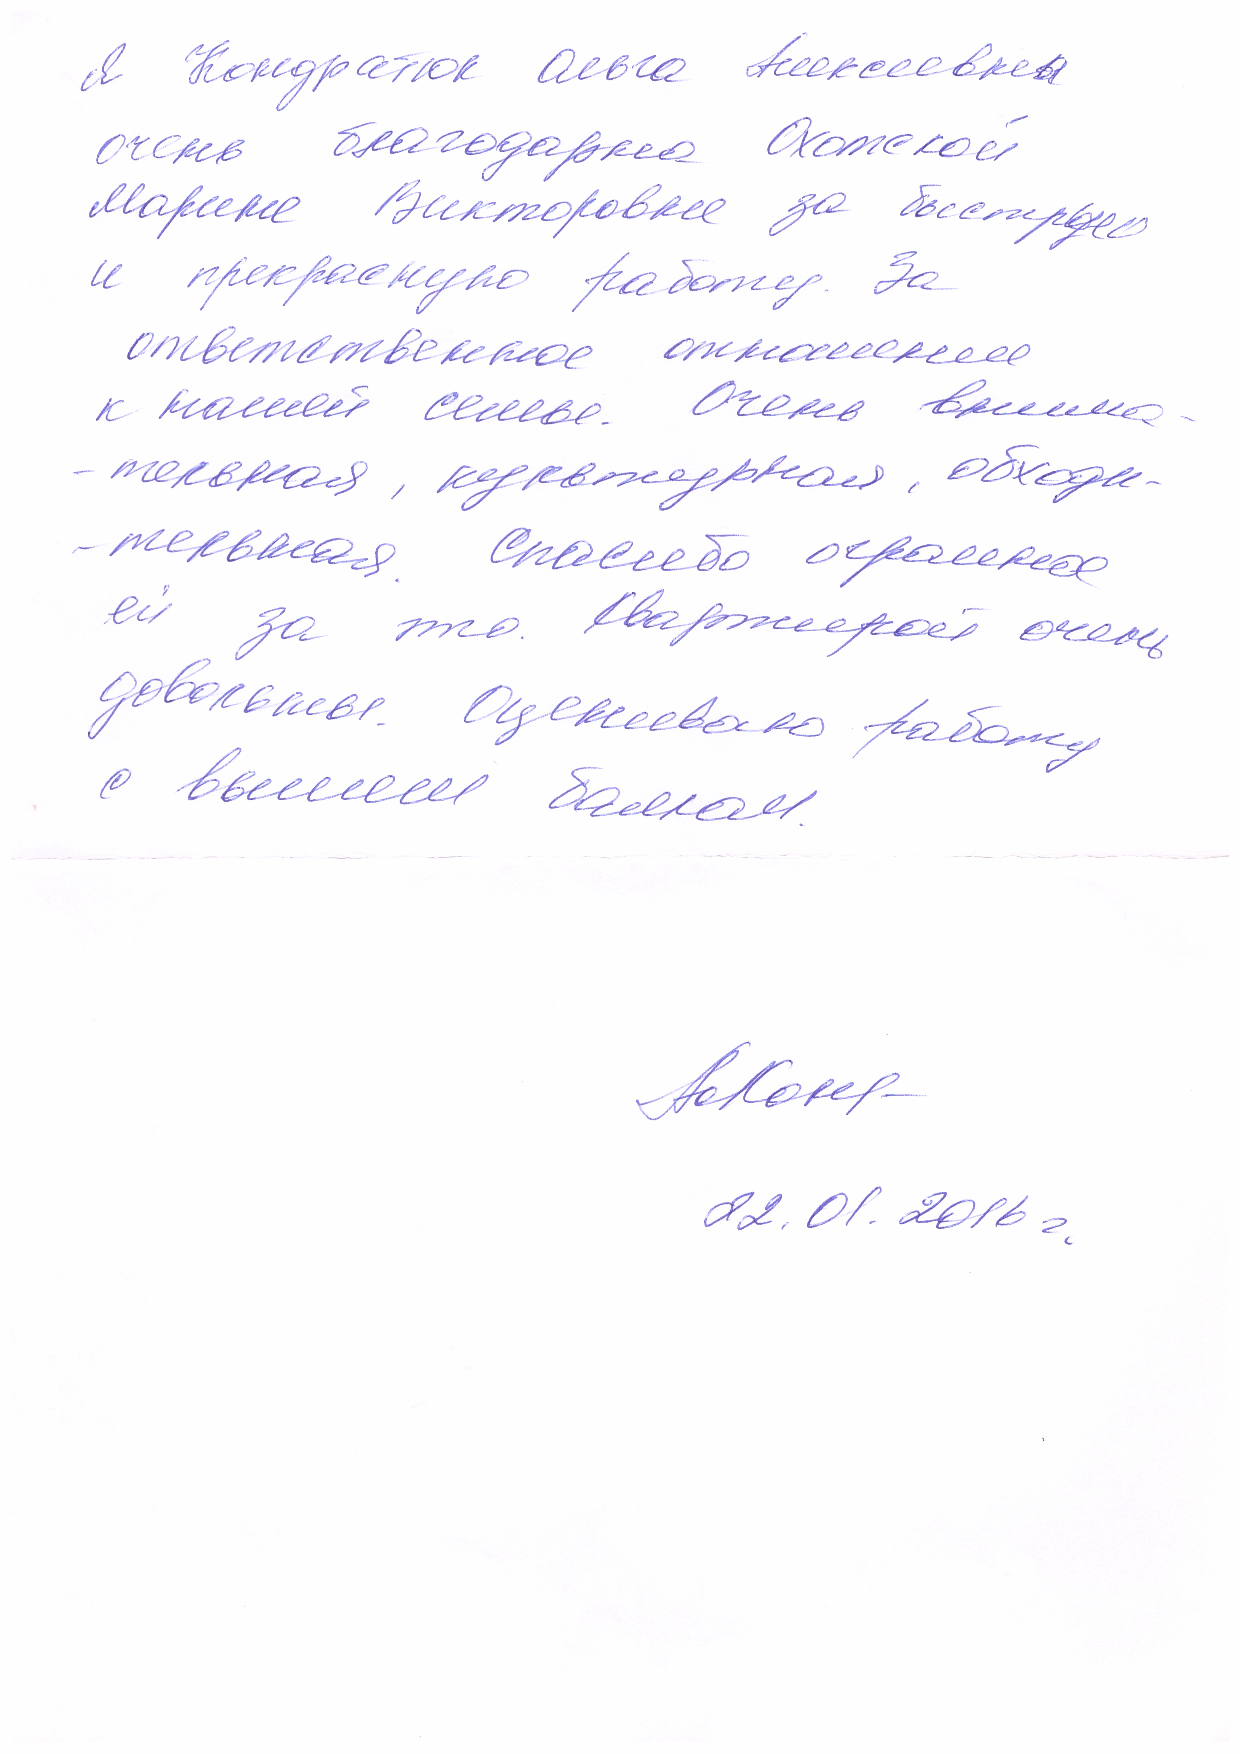 Я Кондратюк Ольга Алексеевна
очень благодарна Охотской
Марине Викторовне за быструю
и прекрасную работу. За
ответственное отношение
к нашей семье. Очень внима-
-тельная, культурная, обходи-
-тельная. Спасибо огромное
ей за это. Квартирой очень
довольны. Оцениваю работу
с высшем баллом.
22.01.2016 г.